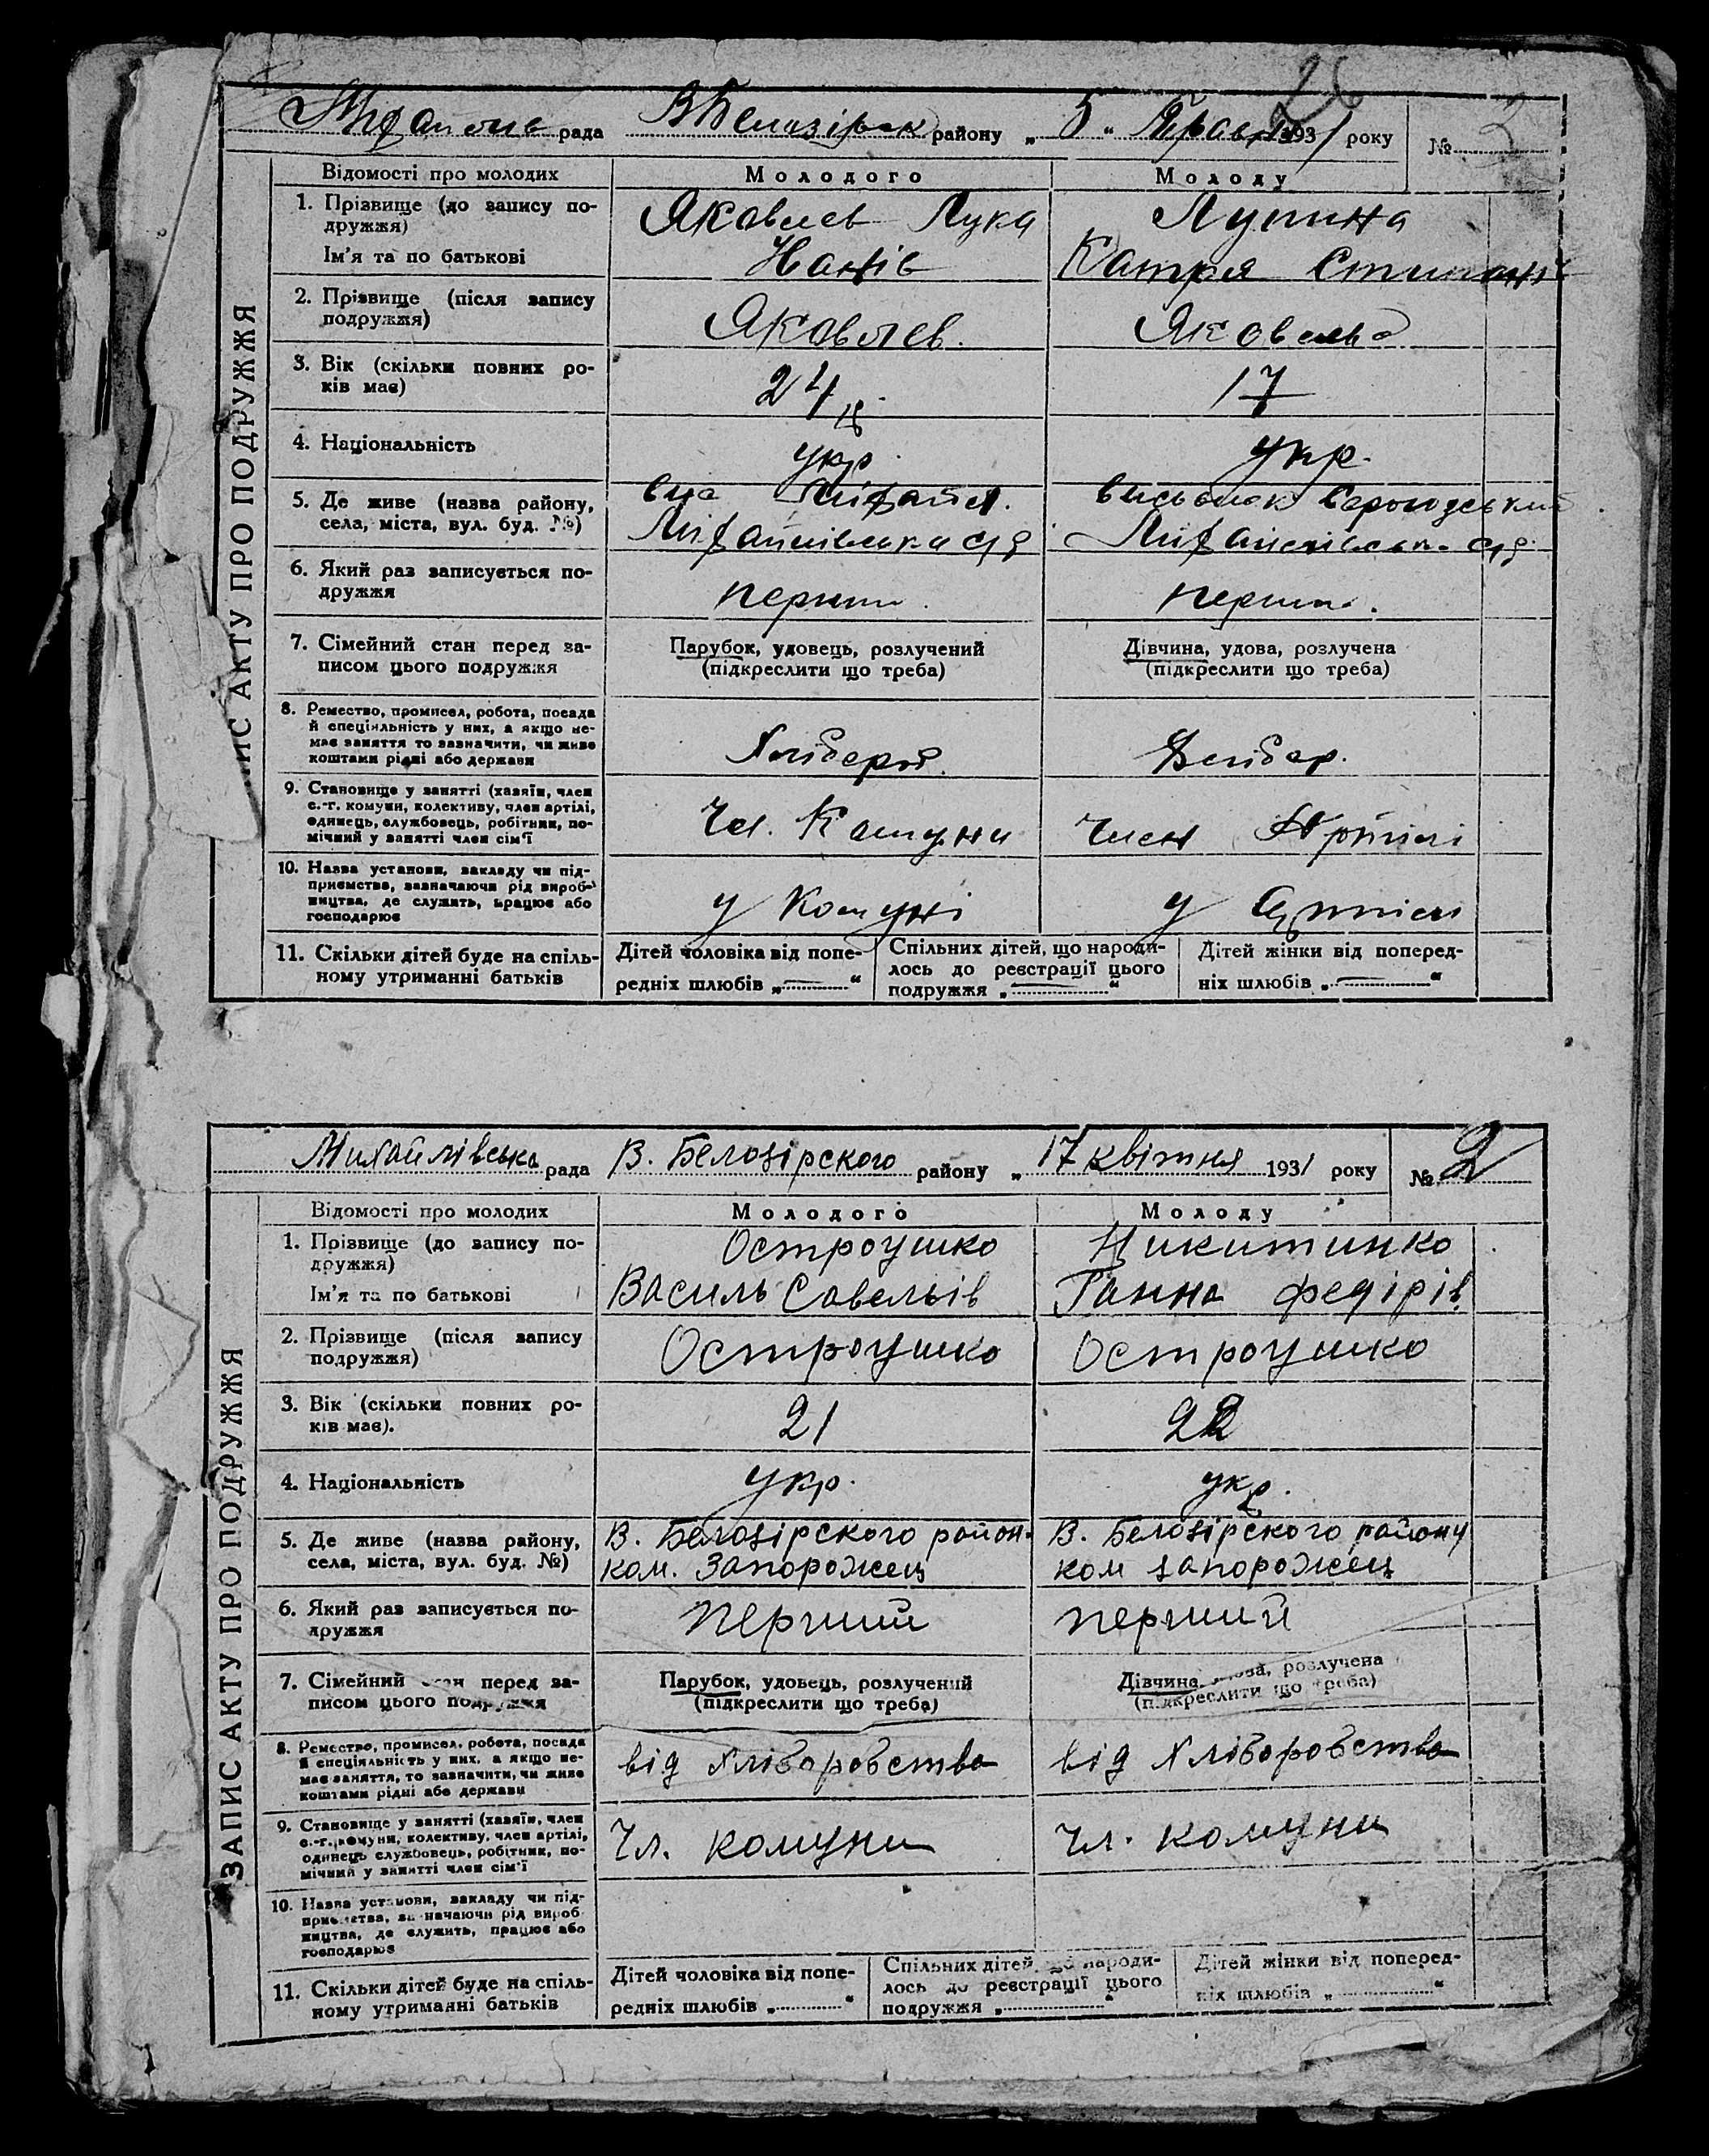 26
рада району „ 5 “ 1931 року № 2
ЗАПИС АКТУ ПРО ПОДРУЖЖЯ
Відомості про молодих Молодого Молоду
1. Прізвище (до запису по- Яковлев Лука Лупина
дружжя)
Ім'я та по батькові Катря
2. Прізвище (після запису Яковлев.
подружжя)
3. Вік (скільки повних ро- 24 17
ків має)
4. Національність укр. укр.
5. Де живе (назва району,
села, міста, вул. буд. №)
6. Який раз записується по- перший.
дружжя
7. Сімейний стан перед за- Парубок, удовець, розлучений Дівчина, удова, розлучена
писом цього подружжя (підкреслити що треба) (підкреслити що треба)
8. Ремество, промисел, робота, посада
й спеціяльність у них, а якщо не-
має заняття то зазначити, чи живе
коштами рідні або держави
9. Становище у занятті (хазяїн, член Чл. Комуни Член Артілі
с.-г. комуни, колективу, член артілі,
одинець, службовець, робітник, по-
мічний у занятті член сім'ї
10. Назва установи, закладу чи під- у Комуні у артілі
приємства, зазначаючи рід вироб-
ництва, де служить, працює або
господарює
11. Скільки дітей буде на спіль- Дітей чоловіка від попе- Спільних дітей, що народи- Дітей жінки від поперед-
ному утриманні батьків редніх шлюбів „—“ лось до реєстрації цього ніх шлюбів „—“
подружжя „—“
Михайлівська рада В. Белозірского району „ 17 квітня 1931 року № 2
ЗАПИС АКТУ ПРО ПОДРУЖЖЯ
Відомості про молодих Молодого Молоду
1. Прізвище (до запису по- Остроушко Никитинко
дружжя)
Ім'я та по батькові Василь Савельів Ганна Федірів
2. Прізвище (після запису Остроушко Остроушко
подружжя)
3. Вік (скільки повних ро- 21 22
ків має).
4. Національність укр. укр.
5. Де живе (назва району, В. Белозірского район. В. Белозірского району
села, міста, вул. буд. №) ком. Запорожец ком запорожец
6. Який раз записується по- перший перший
дружжя
7. Сімейний стан перед за- Парубок, удовець, розлучений Дівчина, удова, розлучена
писом цього подружжя (підкреслити що треба) (підкреслити що треба)
8. Ремество, промисел, робота, посада від хліборобства від хліборобства
й спеціяльність у них, а якщо не-
має заняття, то зазначити, чи живе
коштами рідні або держави
9. Становище у занятті (хазяїн, член Чл. комуни Чл. комуни
с.-г. комуни, колективу, член артілі,
одинець службовець, робітник, по-
мічний у занятті член сім'ї
10. Назва установи, закладу чи під-
приємства, зазначаючи рід вироб-
ництва, де служить, працює або
господарює
11. Скільки дітей буде на спіль- Дітей чоловіка від попе- Спільних дітей, що народи- Дітей жінки від поперед-
ному утриманні батьків редніх шлюбів „ “ лось до реєстрації цього ніх шлюбів „ “
подружжя „ “